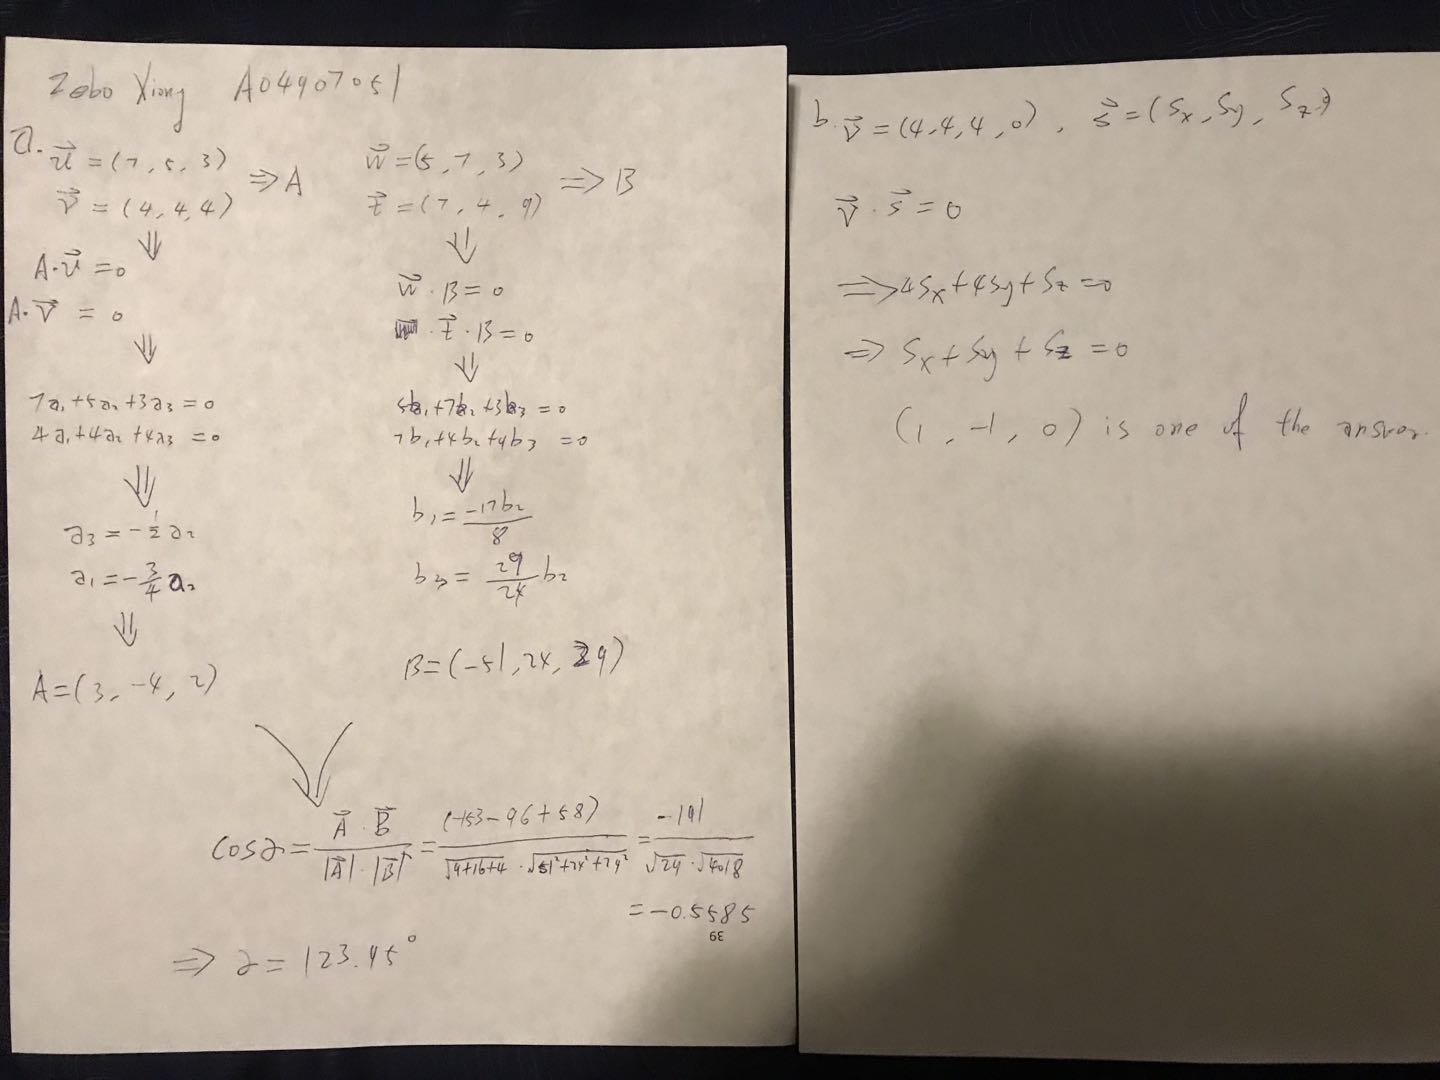 Zebo Xiong A04907051
a. u⃗ = (7, 5, 3)
v⃗ = (4, 4, 4) ⇒ A
⇓
A·u⃗ = 0
A·v⃗ = 0
⇓
7a₁+5a₂+3a₃ = 0
4a₁+4a₂+4a₃ = 0
⇓
a₃ = -½a₂
a₁ = -¾a₂
⇓
A = (3, -4, 2)
w⃗ = (5, 7, 3)
t⃗ = (7, 4, 9) ⇒ B
⇓
w⃗ · B = 0
· t⃗ · B = 0
⇓
5b₁+7b₂+3b₃ = 0
7b₁+4b₂+9b₃ = 0
⇓
b₁ = -17b₂/8
b₃ = 29/24 b₂
B = (-51, 24, 29)
cos a = A⃗·B⃗ / |A⃗|·|B⃗| = (-153-96+58) / √9+16+4 · √51²+24²+29² = -191 / √29 · √4018
= -0.5585
39
⇒ a = 123.45°
b. v⃗ = (4, 4, 4, 0), s⃗ = (Sx, Sy, Sz, )
v⃗ · s⃗ = 0
⇒ 4Sx+4Sy+Sz = 0
⇒ Sx + Sy + Sz = 0
(1, -1, 0) is one of the answer.